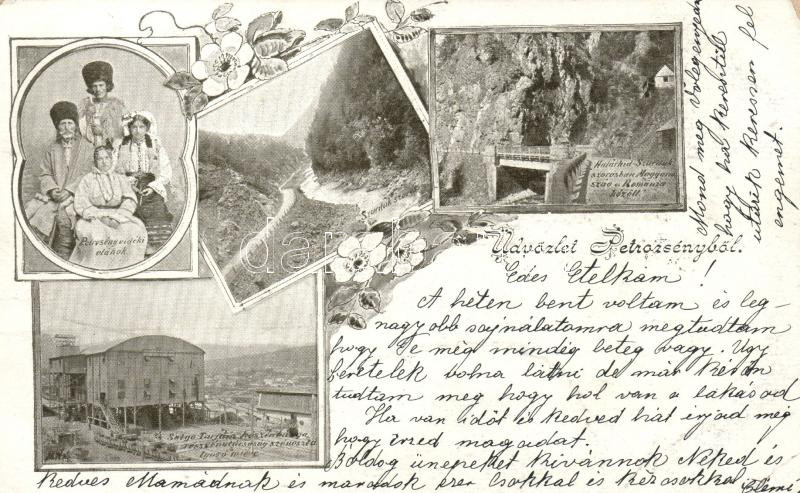 Petrozsényvidéki
oláhok.
Szurduk
Határhid Szurduk
szorosban Magyaror-
szág és Románia
között.
A Salgó Tarjáni Kőszénbánya
részvénytársaság szénosztá
lyozó műve.
Üdvözlet Petrozsényből.
Édes Etelkám!
A héten bent voltam és leg-
nagyobb sajnálatomra megtudtam
hogy Te még mindég beteg vagy. Úgy
szeretelek volna látni de már késön
tudtam meg hogy hol van a lakásod
Ha van időt és kedved hát irjad még
hogy érzed magadat.
Boldog ünnepeket kivánnok Neked és
kedves Mamádnak és maradok ezer csókkal és kézcsókkal
Mond meg Völegenyem
hogy ha keresztül
utazik keressen fel
engemet.
darabanth